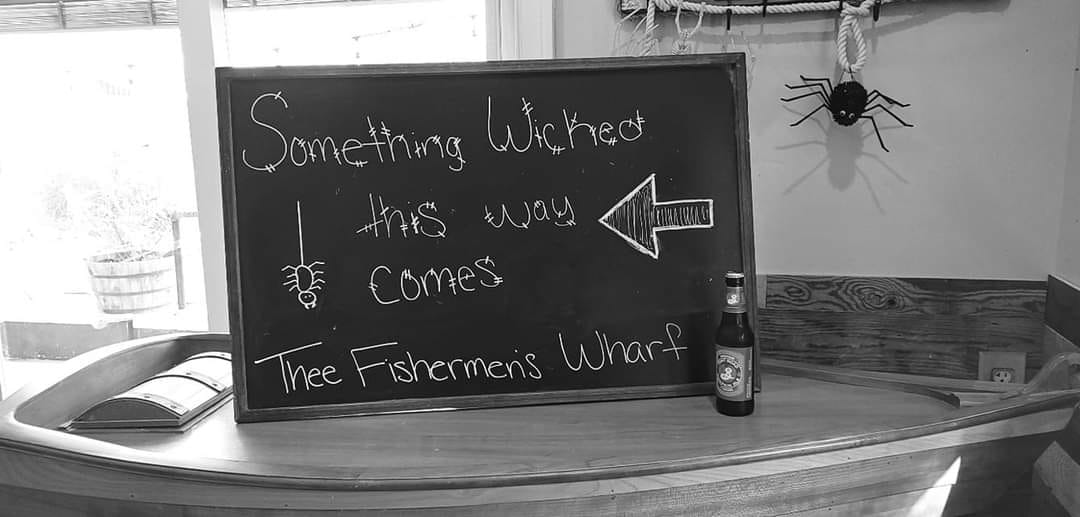 Something Wicked
this way
comes
Thee Fishermen's Wharf